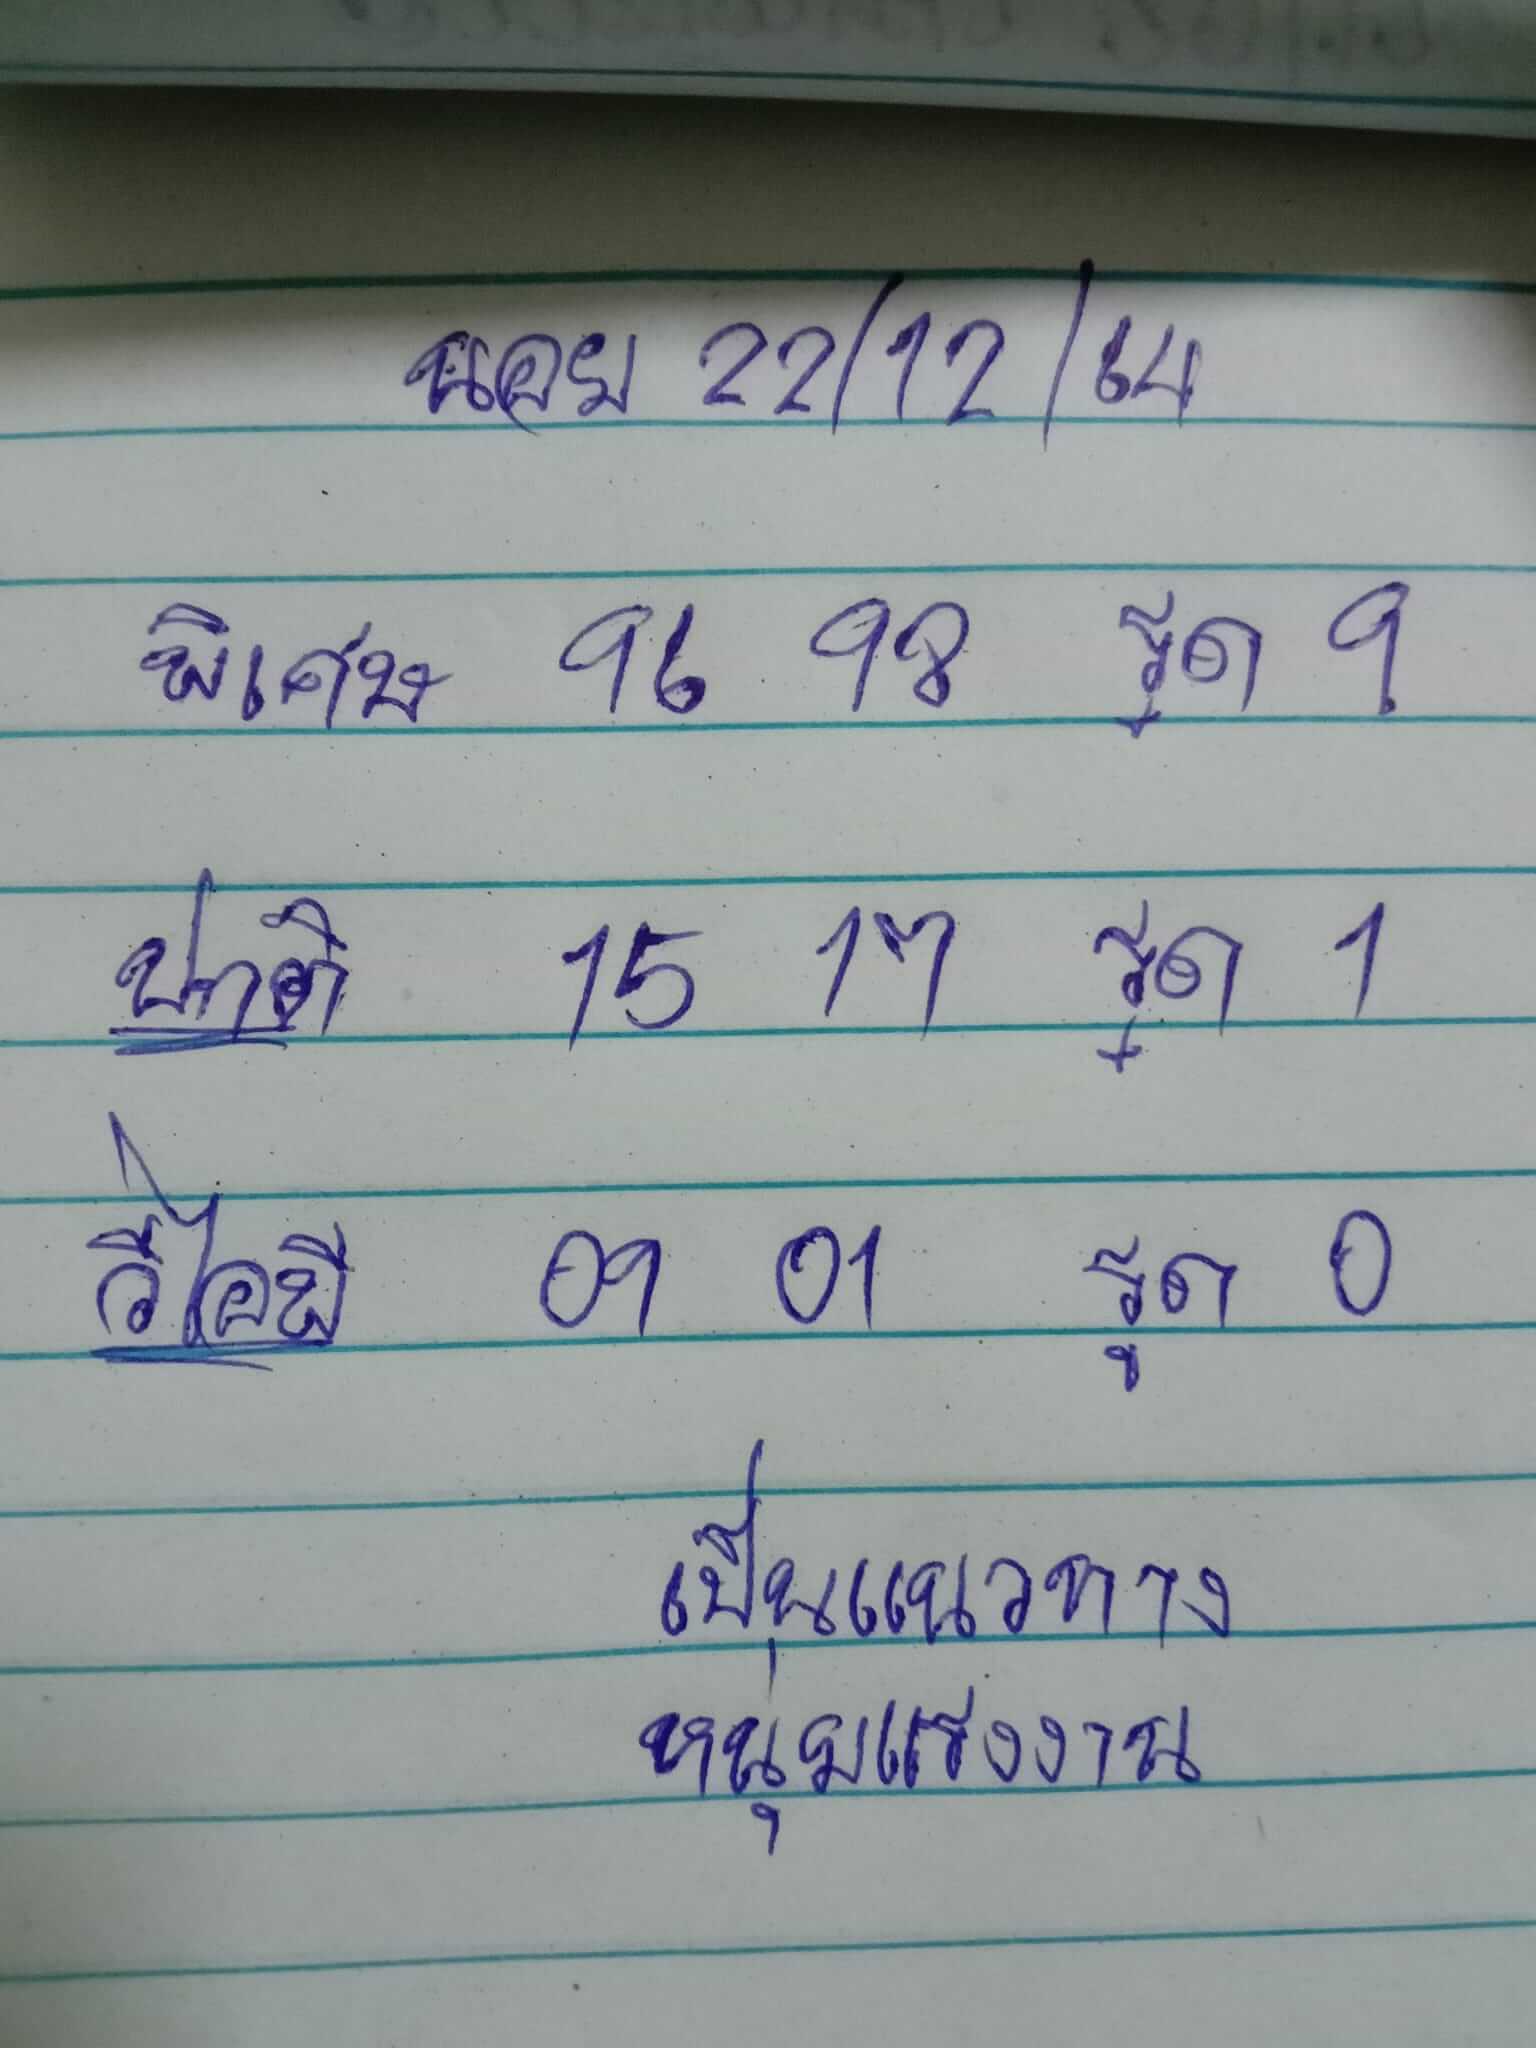 นอย 22/12/64
พิเศษ 96 98 รูด 9
ปกติ 15 17 รูด 1
วีไอพี 09 01 รูด 0
เป็นแนวทาง
หนุ่มแรงงาน